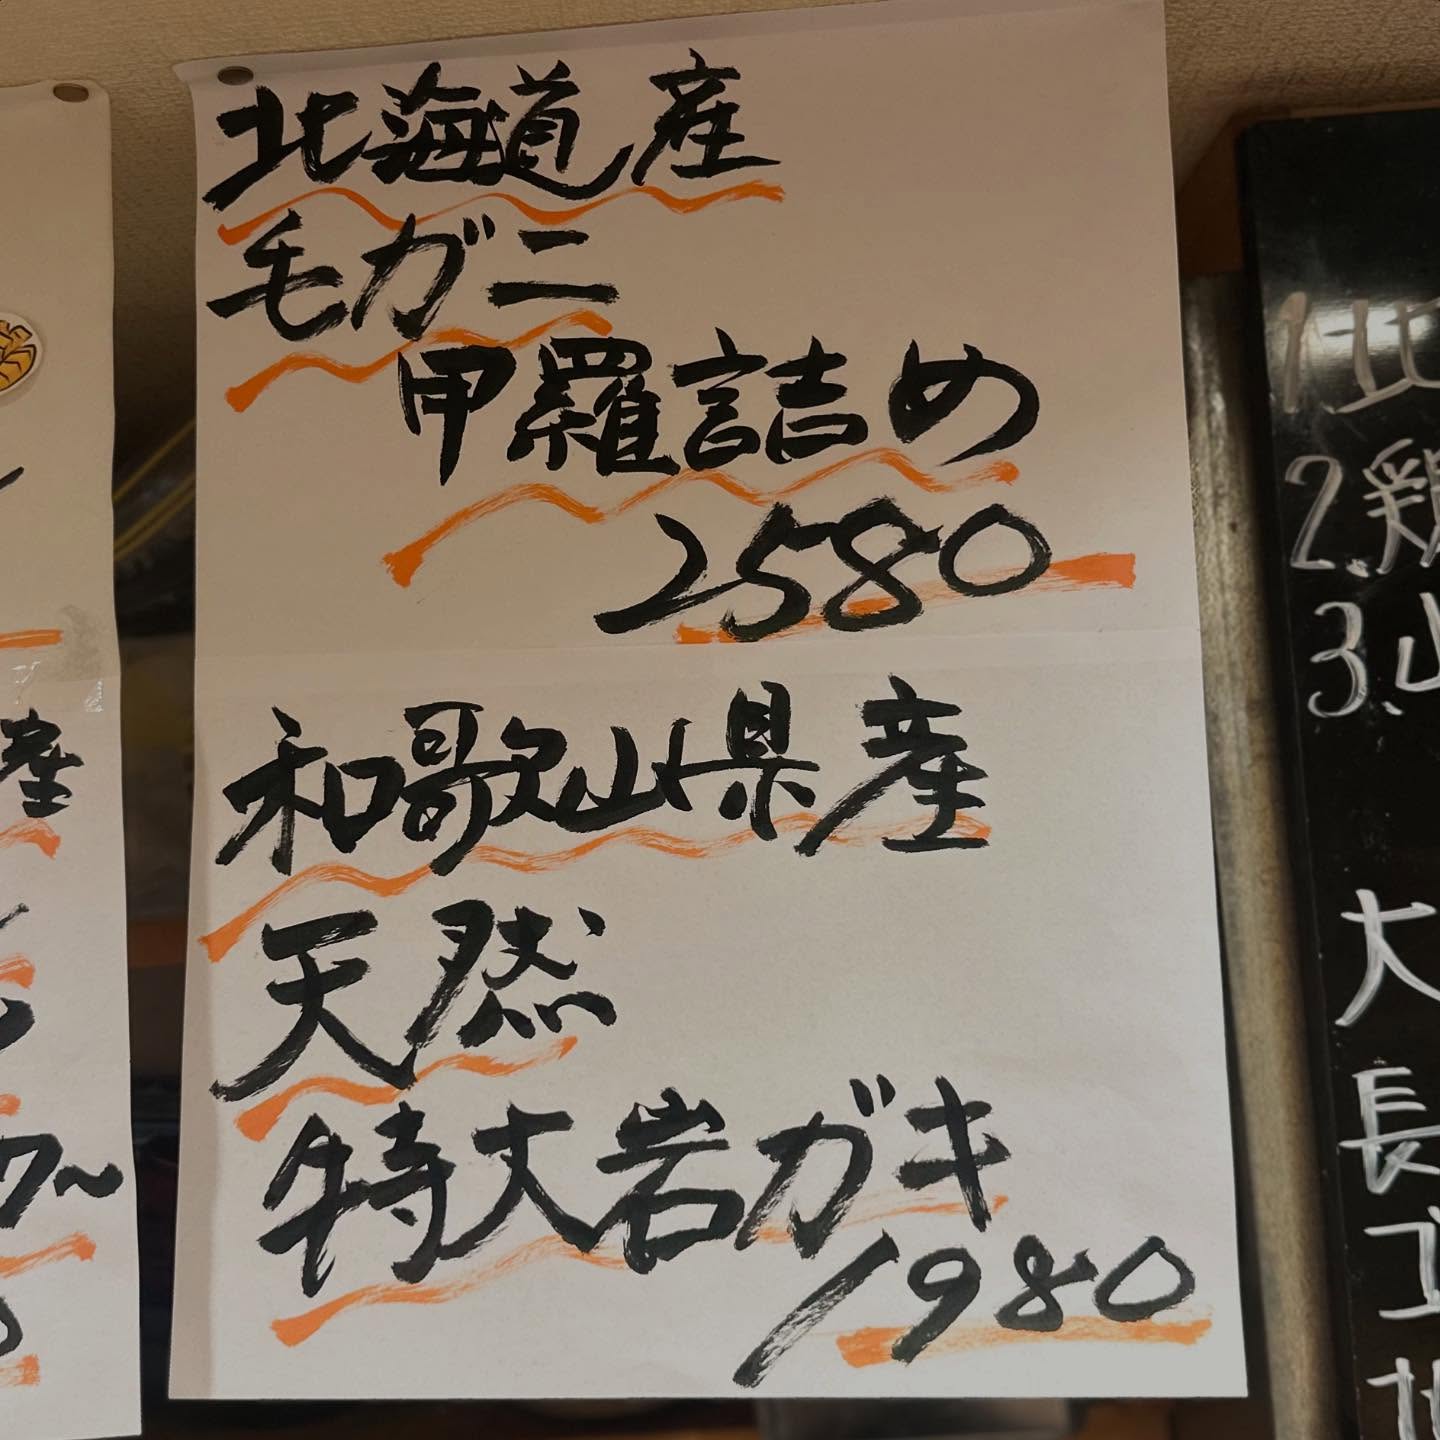 北海道産
毛ガニ
甲羅詰め
2580
和歌山県産
天然
特大岩ガキ
1980
産
1.北
2.鶏
3.山
大
長